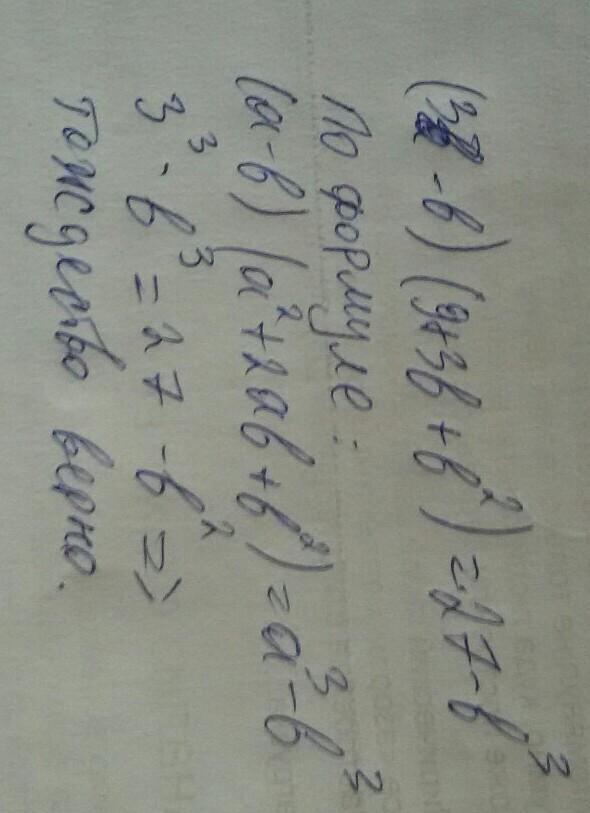 (3 - b) (9+3b + b²) = 27 - b³
По формуле:
(a - b) (a² + 2ab + b²) = a³ - b³
3³ - b³ = 27 - b² =>
тождество верно.